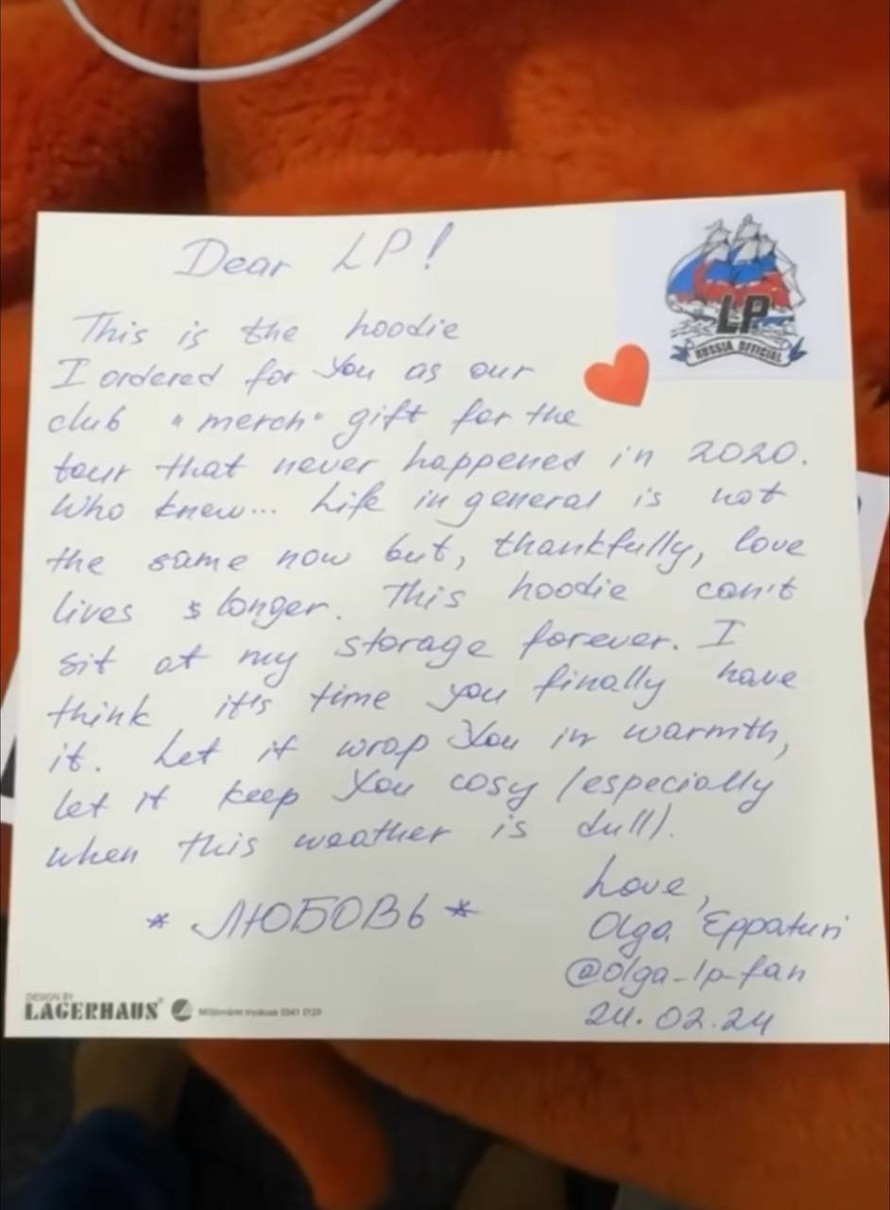 Dear LP!
LP
RUSSIA OFFICIAL
This is the hoodie
I ordered for You as our
club "merch" gift for the
tour that never happened in 2020.
Who knew... Life in general is not
the same now but, thankfully, love
lives longer. This hoodie can't
sit at my storage forever. I
think it's time you finally have
it. Let it wrap You in warmth,
let it keep You cosy (especially
when this weather is dull).
Love,
* ЛЮБОВЬ *
Olga Eppaturi
@olga_lp_fan
24.02.24
DESIGN BY
LAGERHAUS